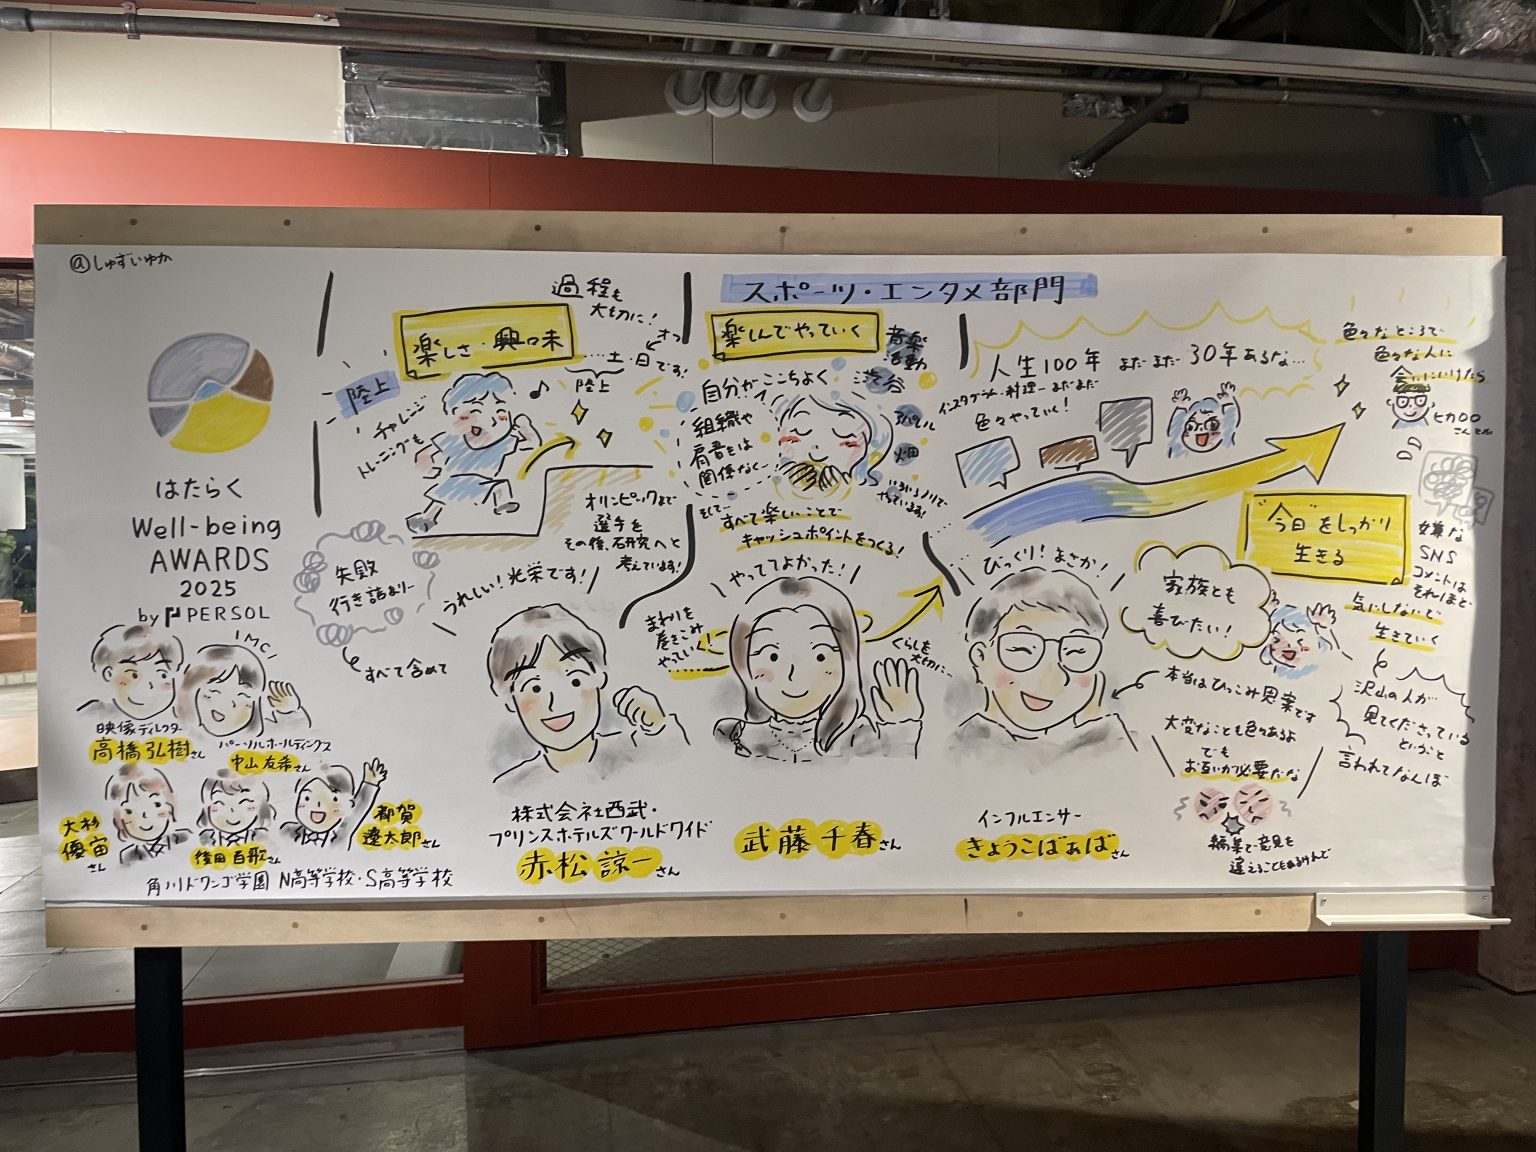 @しゅずいゆか
はたらく
Well-being
AWARDS
2025
by PERSOL
MC
映像ディレクター
高橋弘樹さん
パーソルホールディングス
中山友希さん
大杉
優宙
さん
後田百歌さん
都賀
遼太郎さん
角川ドワンゴ学園 N高等学校・S高等学校
スポーツ・エンタメ部門
過程も
大切に!
楽しさ・興味
陸上
チャレンジ
トレーニングも
オフ
…土・日です!
陸上
オリンピックまで
選手を
その後、研究へと
考えています!
失敗
行き詰まり…
すべて含めて
うれしい!光栄です!
株式会社西武・
プリンスホテルズワールドワイド
赤松諒一さん
楽しんでやっていく
自分がここちよく
組織や
肩書は
関係なく…
音楽
活動
渋谷
アパレル
畑
いろいろノリで
やっています!
そして…
すべて楽しいことで
キャッシュポイントをつくる!
やっててよかった!
まわりを
巻きこみ
やっていく!
くらしも
大切に…
武藤千春さん
人生100年 まだまだ 30年あるな…
インスタグラム・料理…まだまだ
色々やっていく!
色々なところで
色々な人に
会いにいけたら
ヒカロロ
さんとか
"今日"をしっかり
生きる
嫌な
SNS
コメントは
それほど
気にしないで
生きていく
沢山の人が
見てくださっている
ということ
言われてなんぼ
びっくり!まさか!
家族とも
喜びたい!
本当はひっこみ思案です
大変なことも色々あるよ
でも
お互いが必要だな
編集で意見を
違えることもあるけんど
インフルエンサー
きょうこばぁばさん